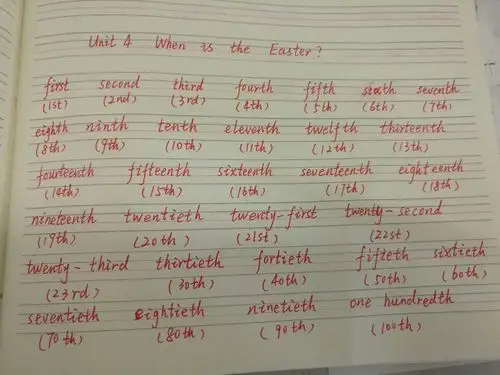 Unit 4 When is the Easter?
first second third fourth fifth sixth seventh
(1st) (2nd) (3rd) (4th) (5th) (6th) (7th)
eighth ninth tenth eleventh twelfth thirteenth
(8th) (9th) (10th) (11th) (12th) (13th)
fourteenth fifteenth sixteenth seventeenth eighteenth
(14th) (15th) (16th) (17th) (18th)
nineteenth twentieth twenty-first twenty-second
(19th) (20th) (21st) (22st)
twenty-third thirtieth fortieth fiftieth sixtieth
(23rd) (30th) (40th) (50th) (60th)
seventieth eightieth ninetieth one hundredth
(70th) (80th) (90th) (100th)